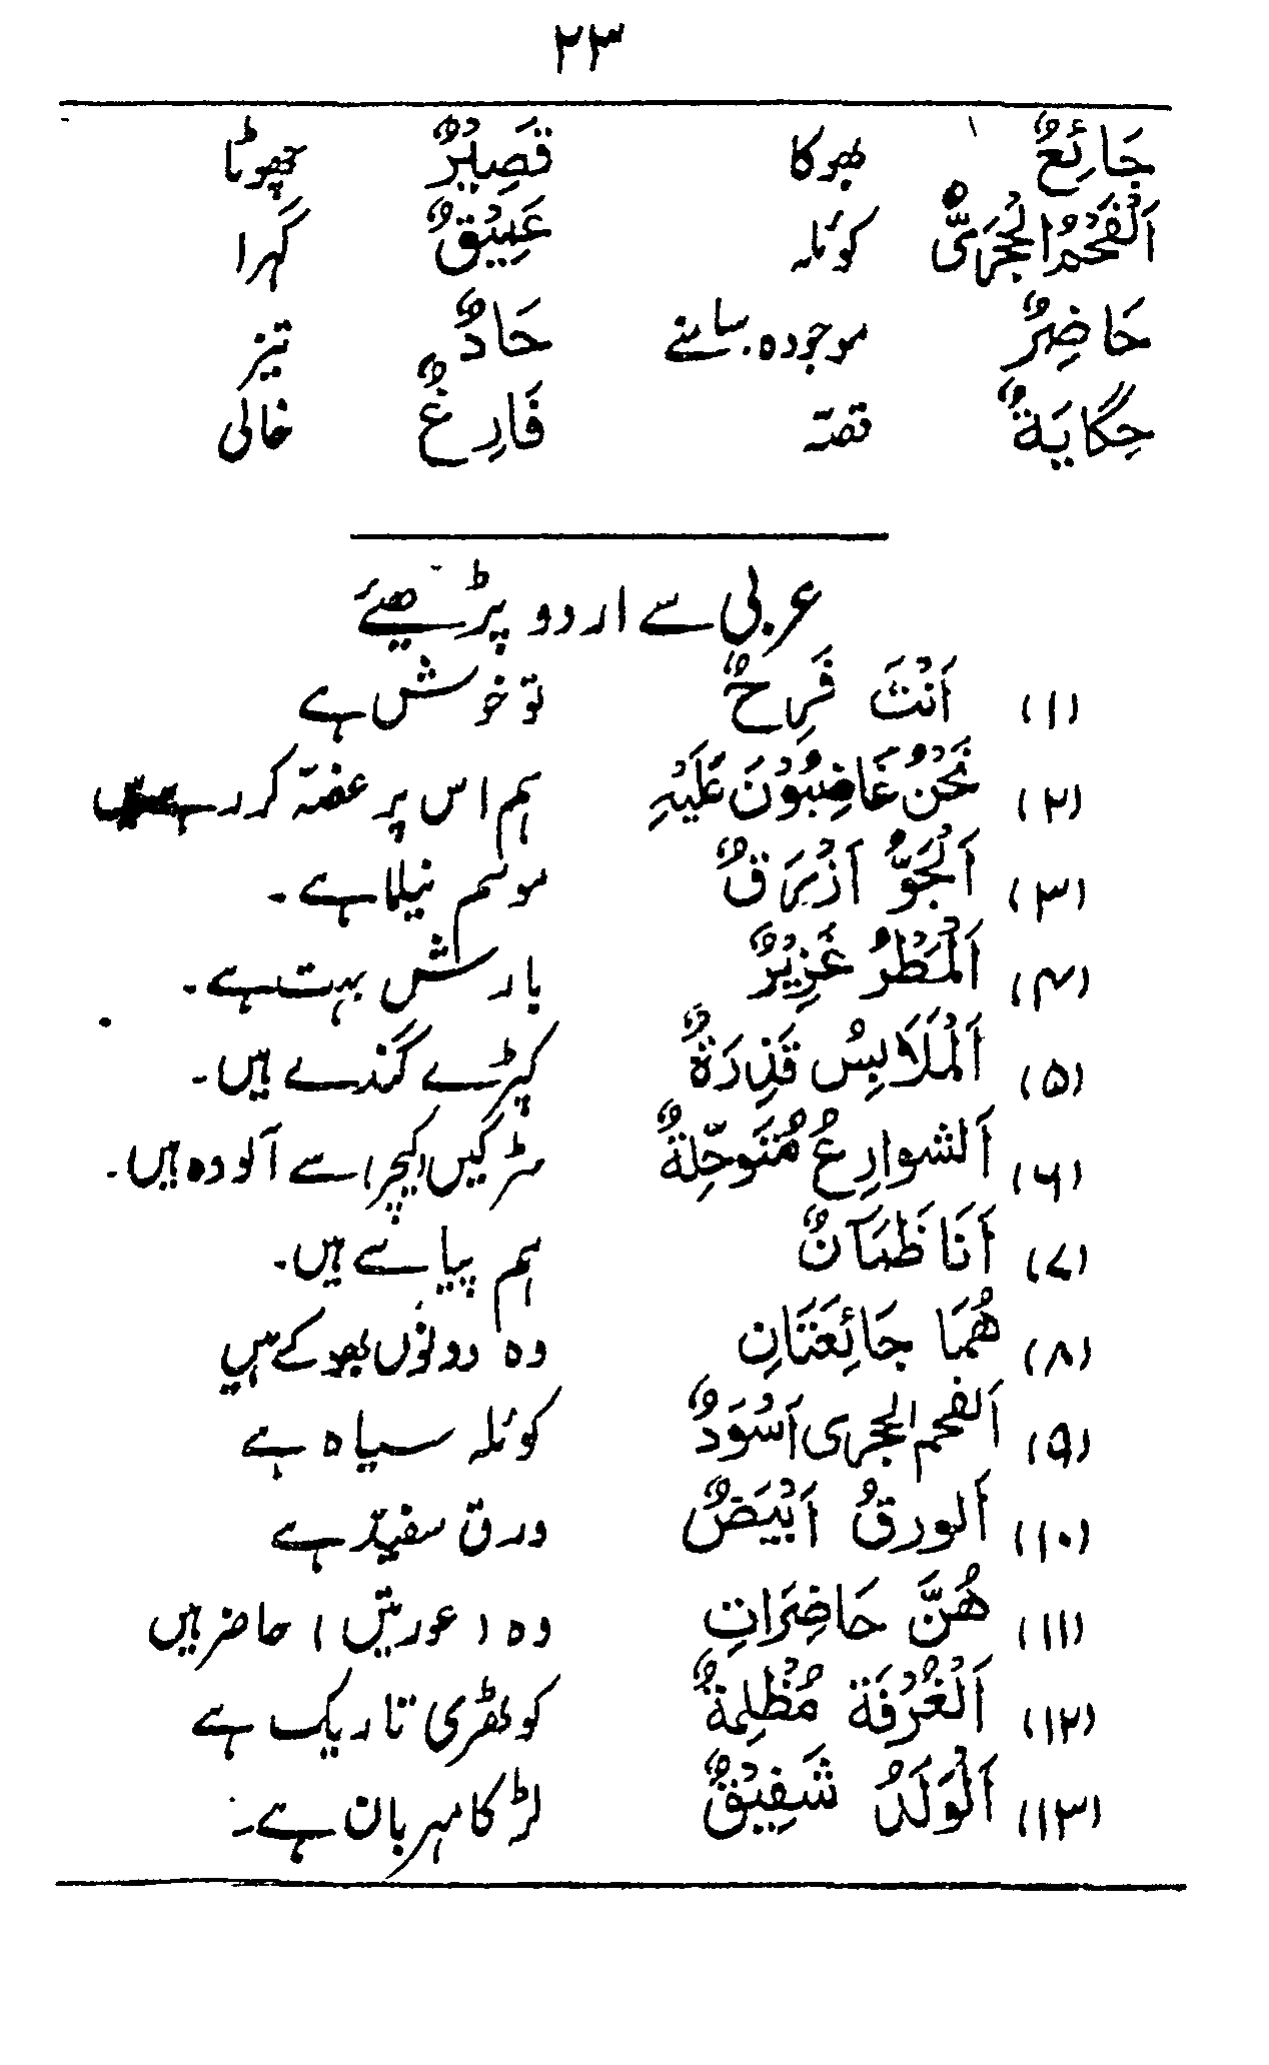 ۲۳
جَائِعٌ بھوکا قَصِیْرٌ چھوٹا
اَلْفَحْمُ الْحَجَرِیُّ کوئلہ عَمِیْقٌ گہرا
حَاضِرٌ موجودہ۔سامنے حَادٌ تیز
حِکَایَةٌ قصّہ فَارِغٌ خالی
عربی سے اردو پڑھیئے
(۱) اَنْتَ فَرِحٌ تو خوش ہے
(۲) نَحْنُ غَاضِبُوْنَ عَلَیْہِ ہم اس پر غصّہ کر رہے ہیں
(۳) اَلْجَوُّ اَزْرَقٌ موسم نیلا ہے۔
(۴) اَلْمَطْرُ غَزِیْرٌ بارش بہت ہے۔
(۵) اَلْمَلَابِسُ قَذِرَةٌ کپڑے گندے ہیں۔
(۶) اَلشوارِعُ مُتَوحِّلِةٌ سڑکیں (کیچڑ) سے آلودہ ہیں۔
(۷) اَنَا ظَمَآنٌ ہم پیاسے ہیں۔
(۸) ھُمَا جَائِعَتَانِ وہ دونوں بھوکے ہیں
(۹) اَلفحم الحجری اَسْوَدٌ کوئلہ سیاہ ہے
(۱۰) اَلورقُ اَبْیَضٌ ورق سفید ہے
(۱۱) ھُنَّ حَاضِرَاتِ وہ (عورتیں) حاضر ہیں
(۱۲) اَلْغُرْفَة مُظْلِمةٌ کوٹھڑی تاریک ہے
(۱۳) اَلْوَلَدُ شَفِیْقٌ لڑکا مہربان ہے۔